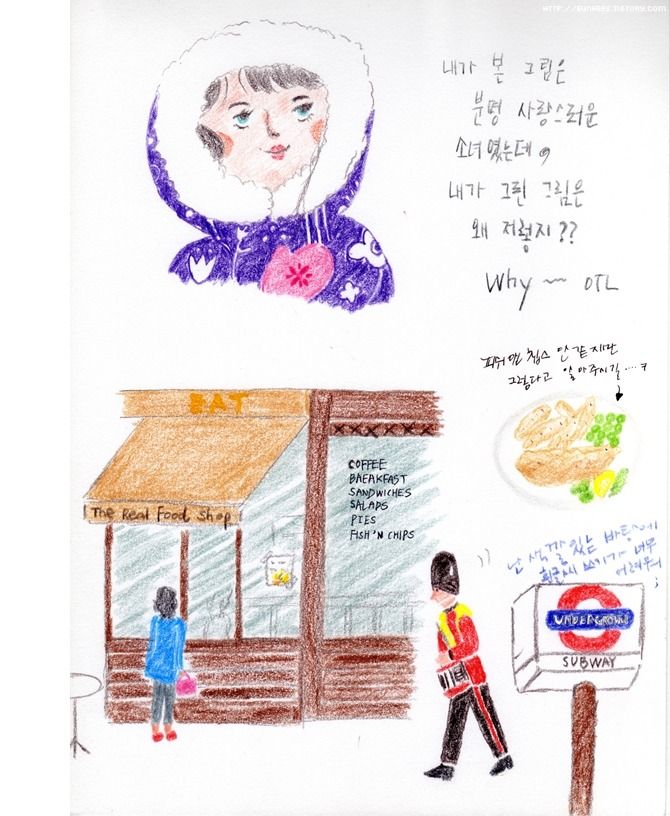 HTTP://SUNHEE5.TISTORY.COM
내가 본 그림은
분명 사랑스러운
소녀였는데,
내가 그린 그림은
왜 저렇지??
Why ~ OTL
피쉬앤 칩스 안 같지만
그렇다고 알아주시길....ㅋ
EAT
The Real Food Shop
COFFEE
BREAKFAST
SANDWICHES
SALADS
PIES
FISH'N CHIPS
난 색깔 있는 바탕에
흰글씨 쓰기가 너무
어려워
UNDERGROUND
SUBWAY